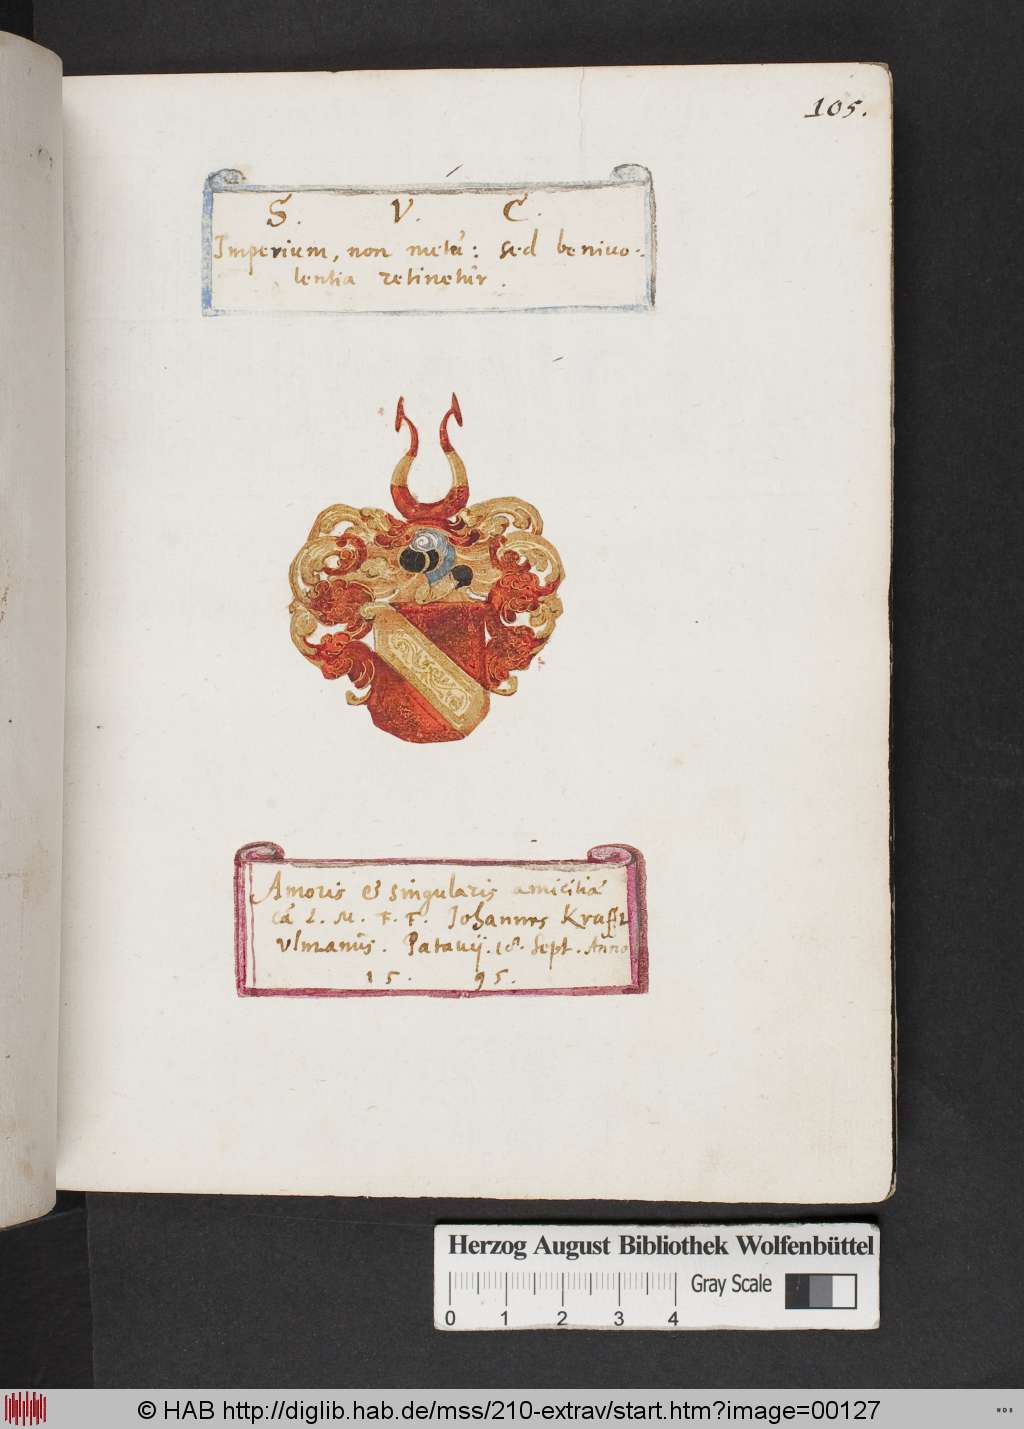 105.
S. V. C.
Imperium, non metu: sed benivo-
lentia retinetur.
Amoris & singularis amicitiæ
cã L. M. F. F. Johannes Krafft
Ulmanus. Patavij. 18. Sept. Anno
15. 95.
Herzog August Bibliothek Wolfenbüttel
Gray Scale
0 1 2 3 4
© HAB http://diglib.hab.de/mss/210-extrav/start.htm?image=00127